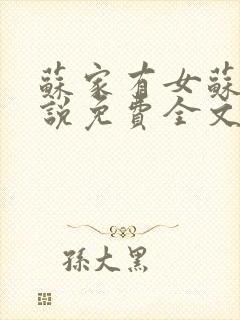 蘇家有女蘇
說免費全文
孫大黑